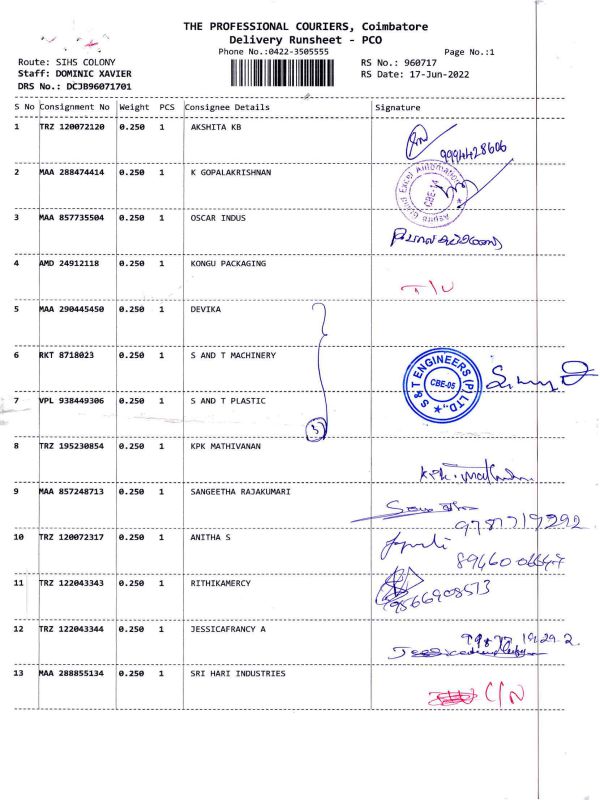 THE PROFESSIONAL COURIERS, Coimbatore
Delivery Runsheet - PCO
Phone No.:0422-3505555
Page No.:1
Route: SIHS COLONY
RS No.: 960717
Staff: DOMINIC XAVIER
RS Date: 17-Jun-2022
DRS No.: DCJB96071701
S No Consignment No Weight PCS Consignee Details Signature
1 TRZ 120072120 0.250 1 AKSHITA KB
9994428606
2 MAA 288474414 0.250 1 K GOPALAKRISHNAN
CBE-14
3 MAA 857735504 0.250 1 OSCAR INDUS
4 AMD 24912118 0.250 1 KONGU PACKAGING
5 MAA 290445450 0.250 1 DEVIKA
6 RKT 8718023 0.250 1 S AND T MACHINERY
S & T ENGINEERS (P) LTD.,
CBE-05
7 VPL 938449306 0.250 1 S AND T PLASTIC
3
8 TRZ 195230854 0.250 1 KPK MATHIVANAN
9 MAA 857248713 0.250 1 SANGEETHA RAJAKUMARI
10 TRZ 120072317 0.250 1 ANITHA S
11 TRZ 122043343 0.250 1 RITHIKAMERCY
9566908513
12 TRZ 122043344 0.250 1 JESSICAFRANCY A
13 MAA 288855134 0.250 1 SRI HARI INDUSTRIES
C/N